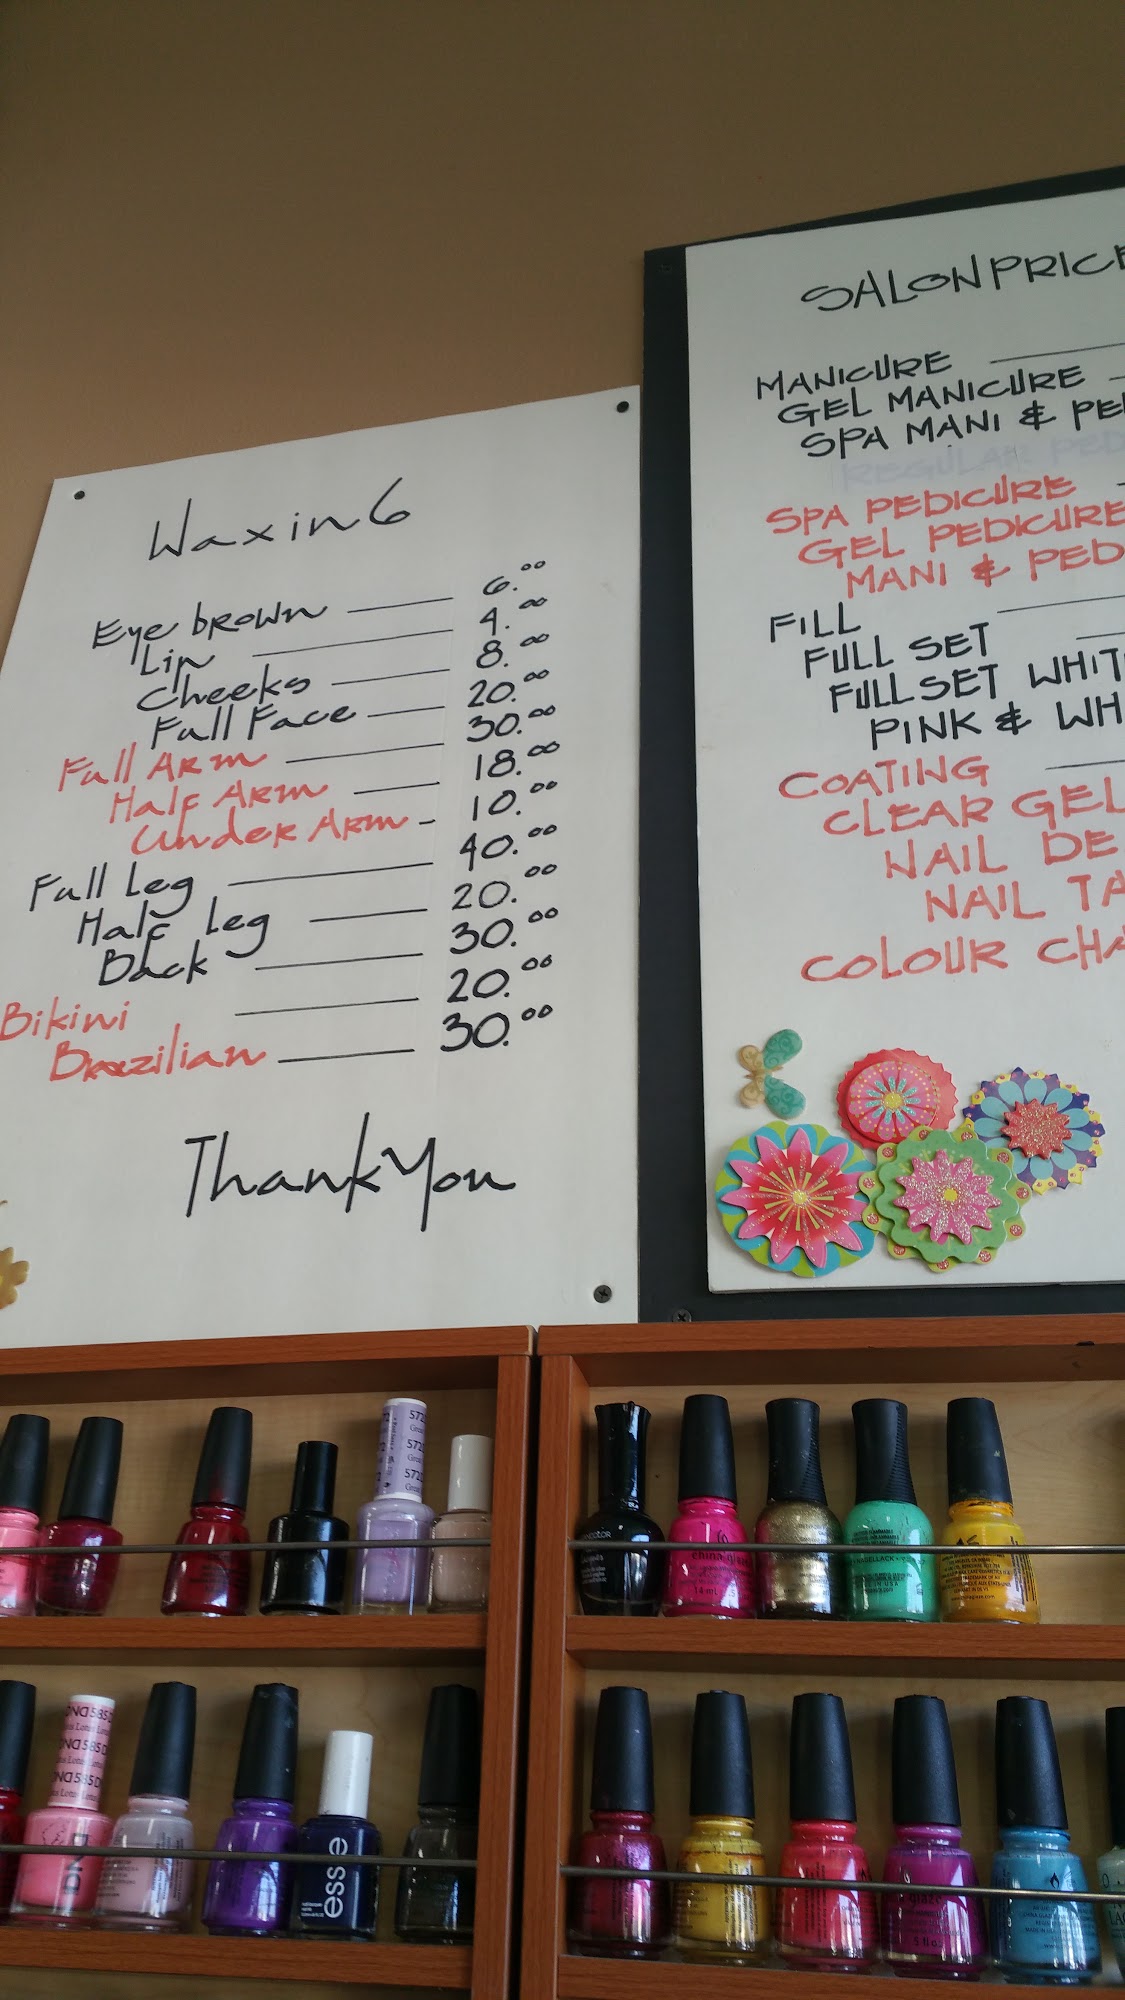 Waxin6
Eye brown 6.00
Lip 4.00
Cheeks 8.00
Full Face 20.00
Full Arm 30.00
Half Arm 18.00
Under Arm 10.00
Full Leg 40.00
Half leg 20.00
Back 30.00
Bikini 20.00
Brazilian 30.00
Thank You
SALON PRICE
MANICURE
GEL MANICURE
SPA MANI & PE
REGULAR PED
SPA PEDICURE
GEL PEDICURE
MANI & PED
FILL
FULL SET
FULL SET WHIT
PINK & WH
COATING
CLEAR GEL
NAIL DE
NAIL TA
COLOUR CHA
572
572
572
china glaze
14 mL
NAGELLACK
IN USA
DND 585
585
585
DND
essie
glaze
5 fl